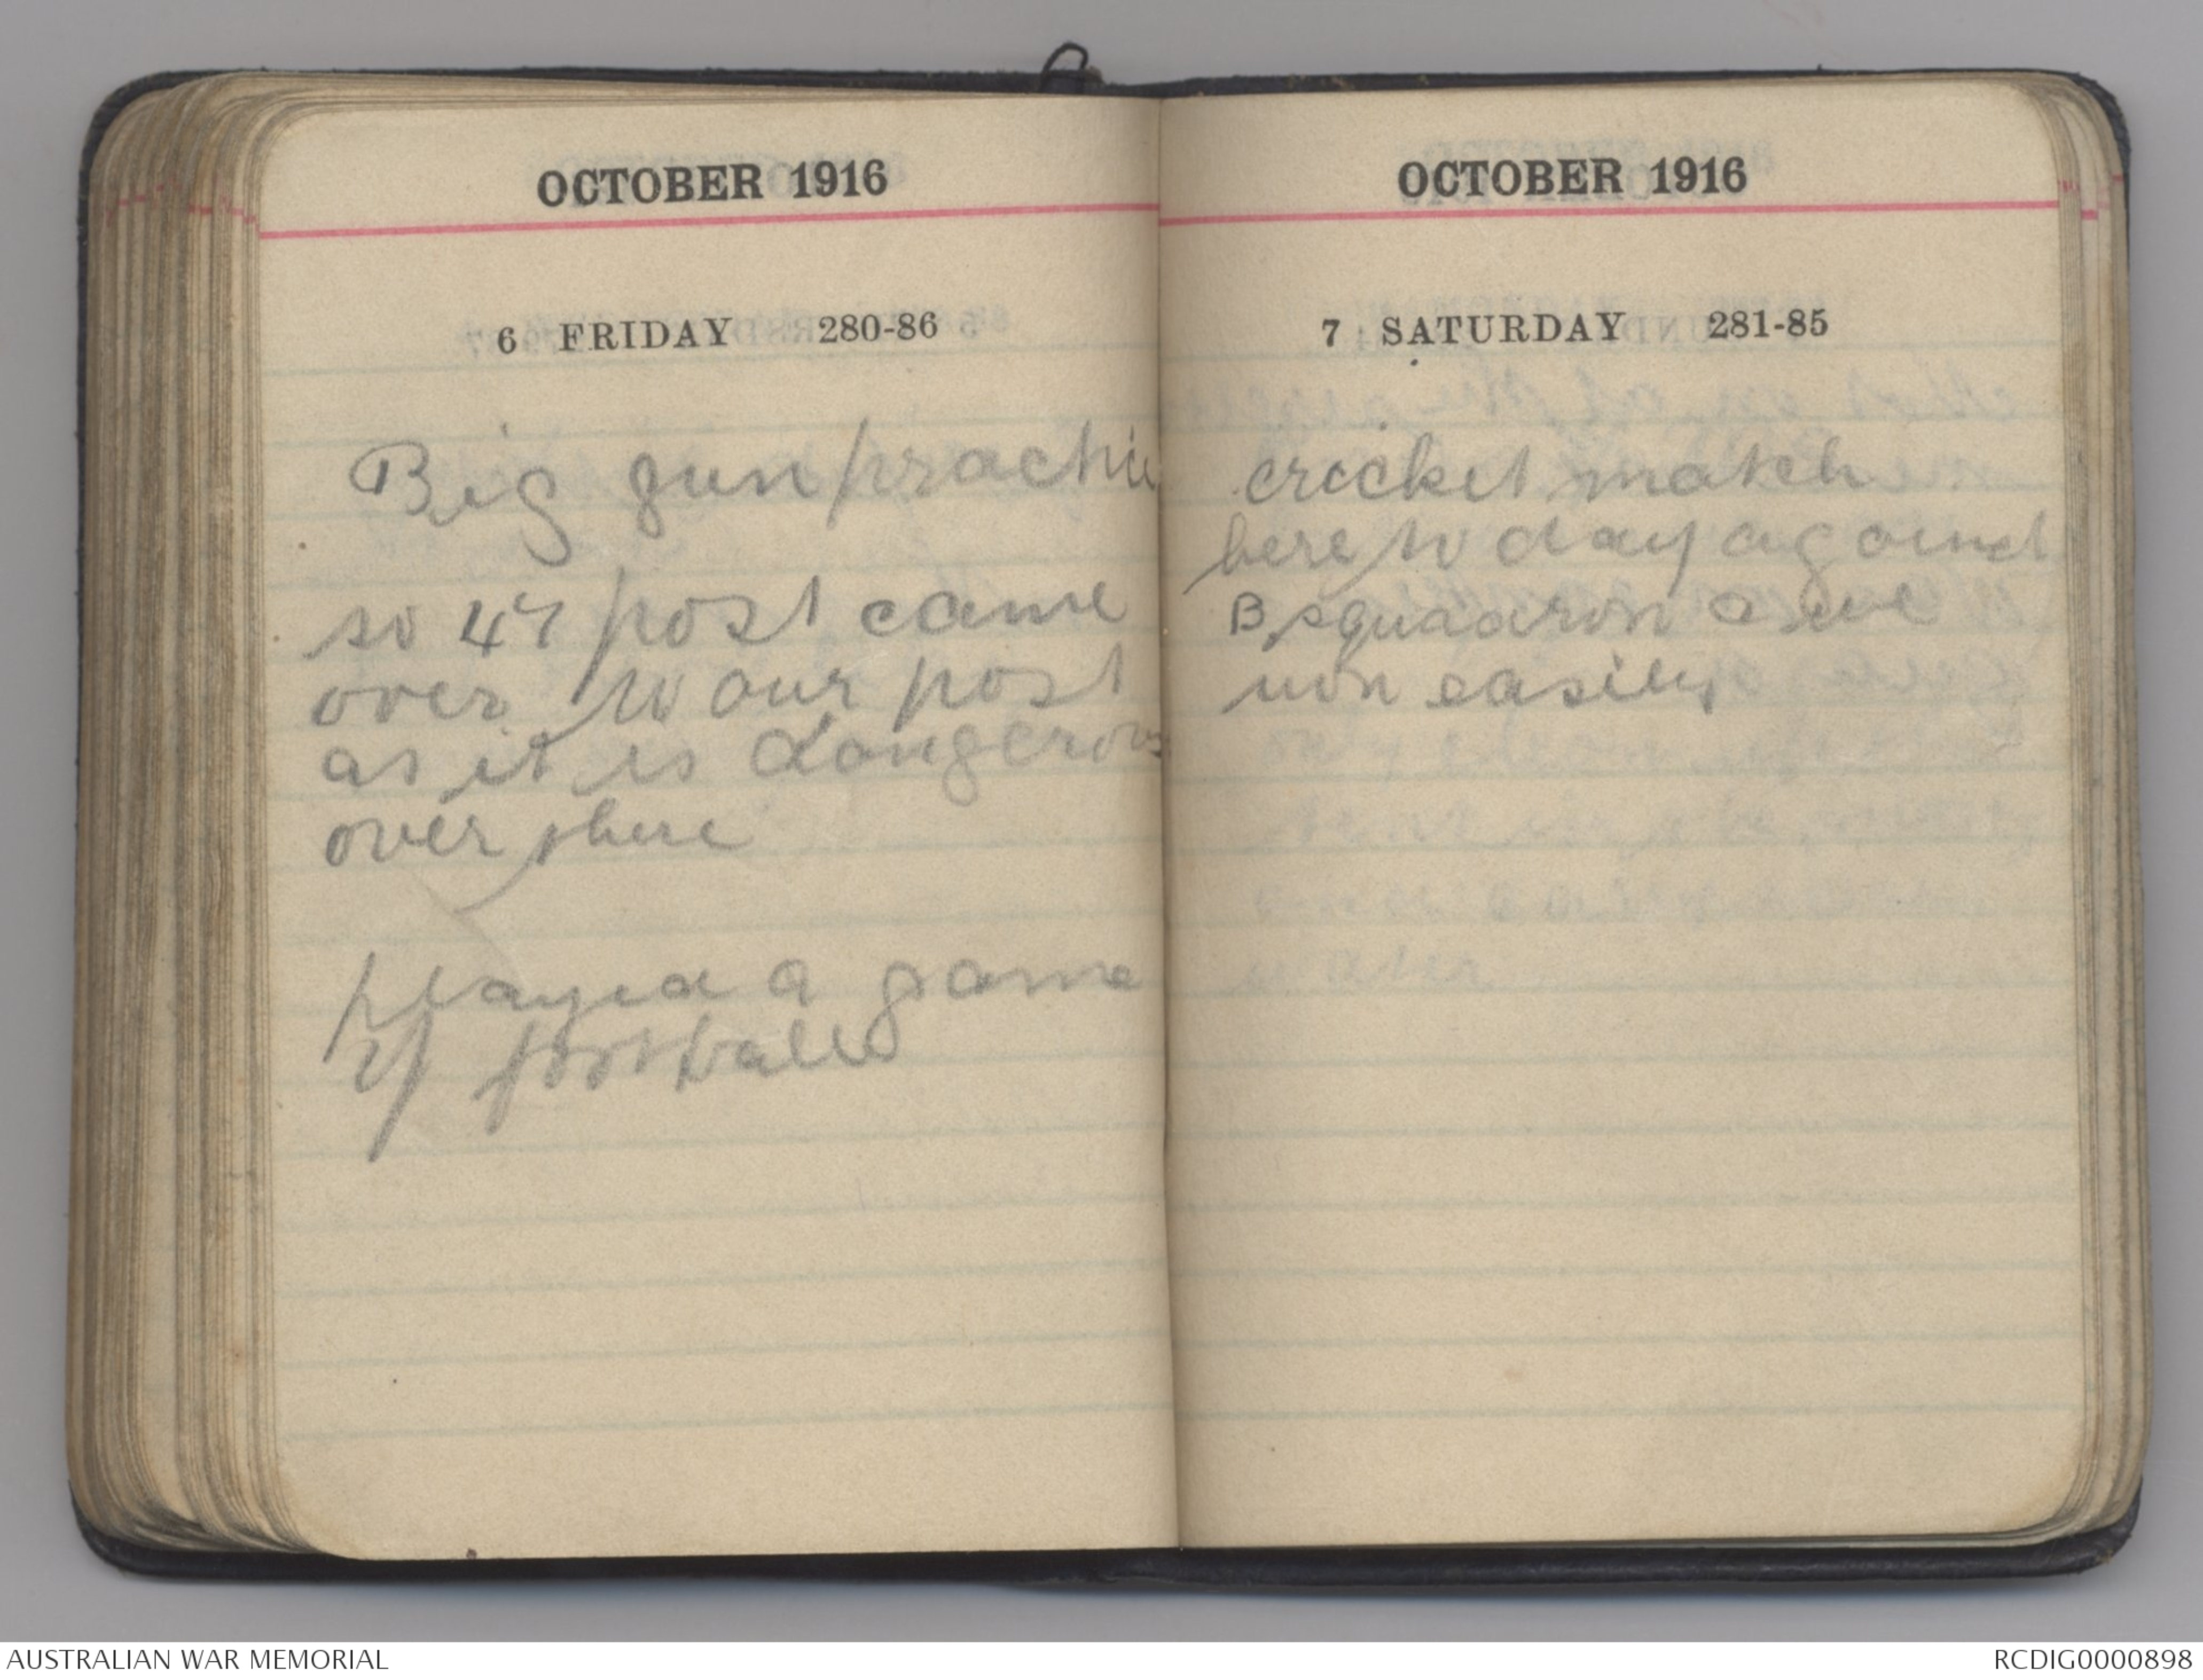 OCTOBER 1916
6 FRIDAY 280-86
Big gun practice
so 47 post came
over to our post
as it is dangerous
over there
played a game
of football
OCTOBER 1916
7 SATURDAY 281-85
cricket match
here to day against
B squadron & we
won easily
AUSTRALIAN WAR MEMORIAL
RCDIG0000898